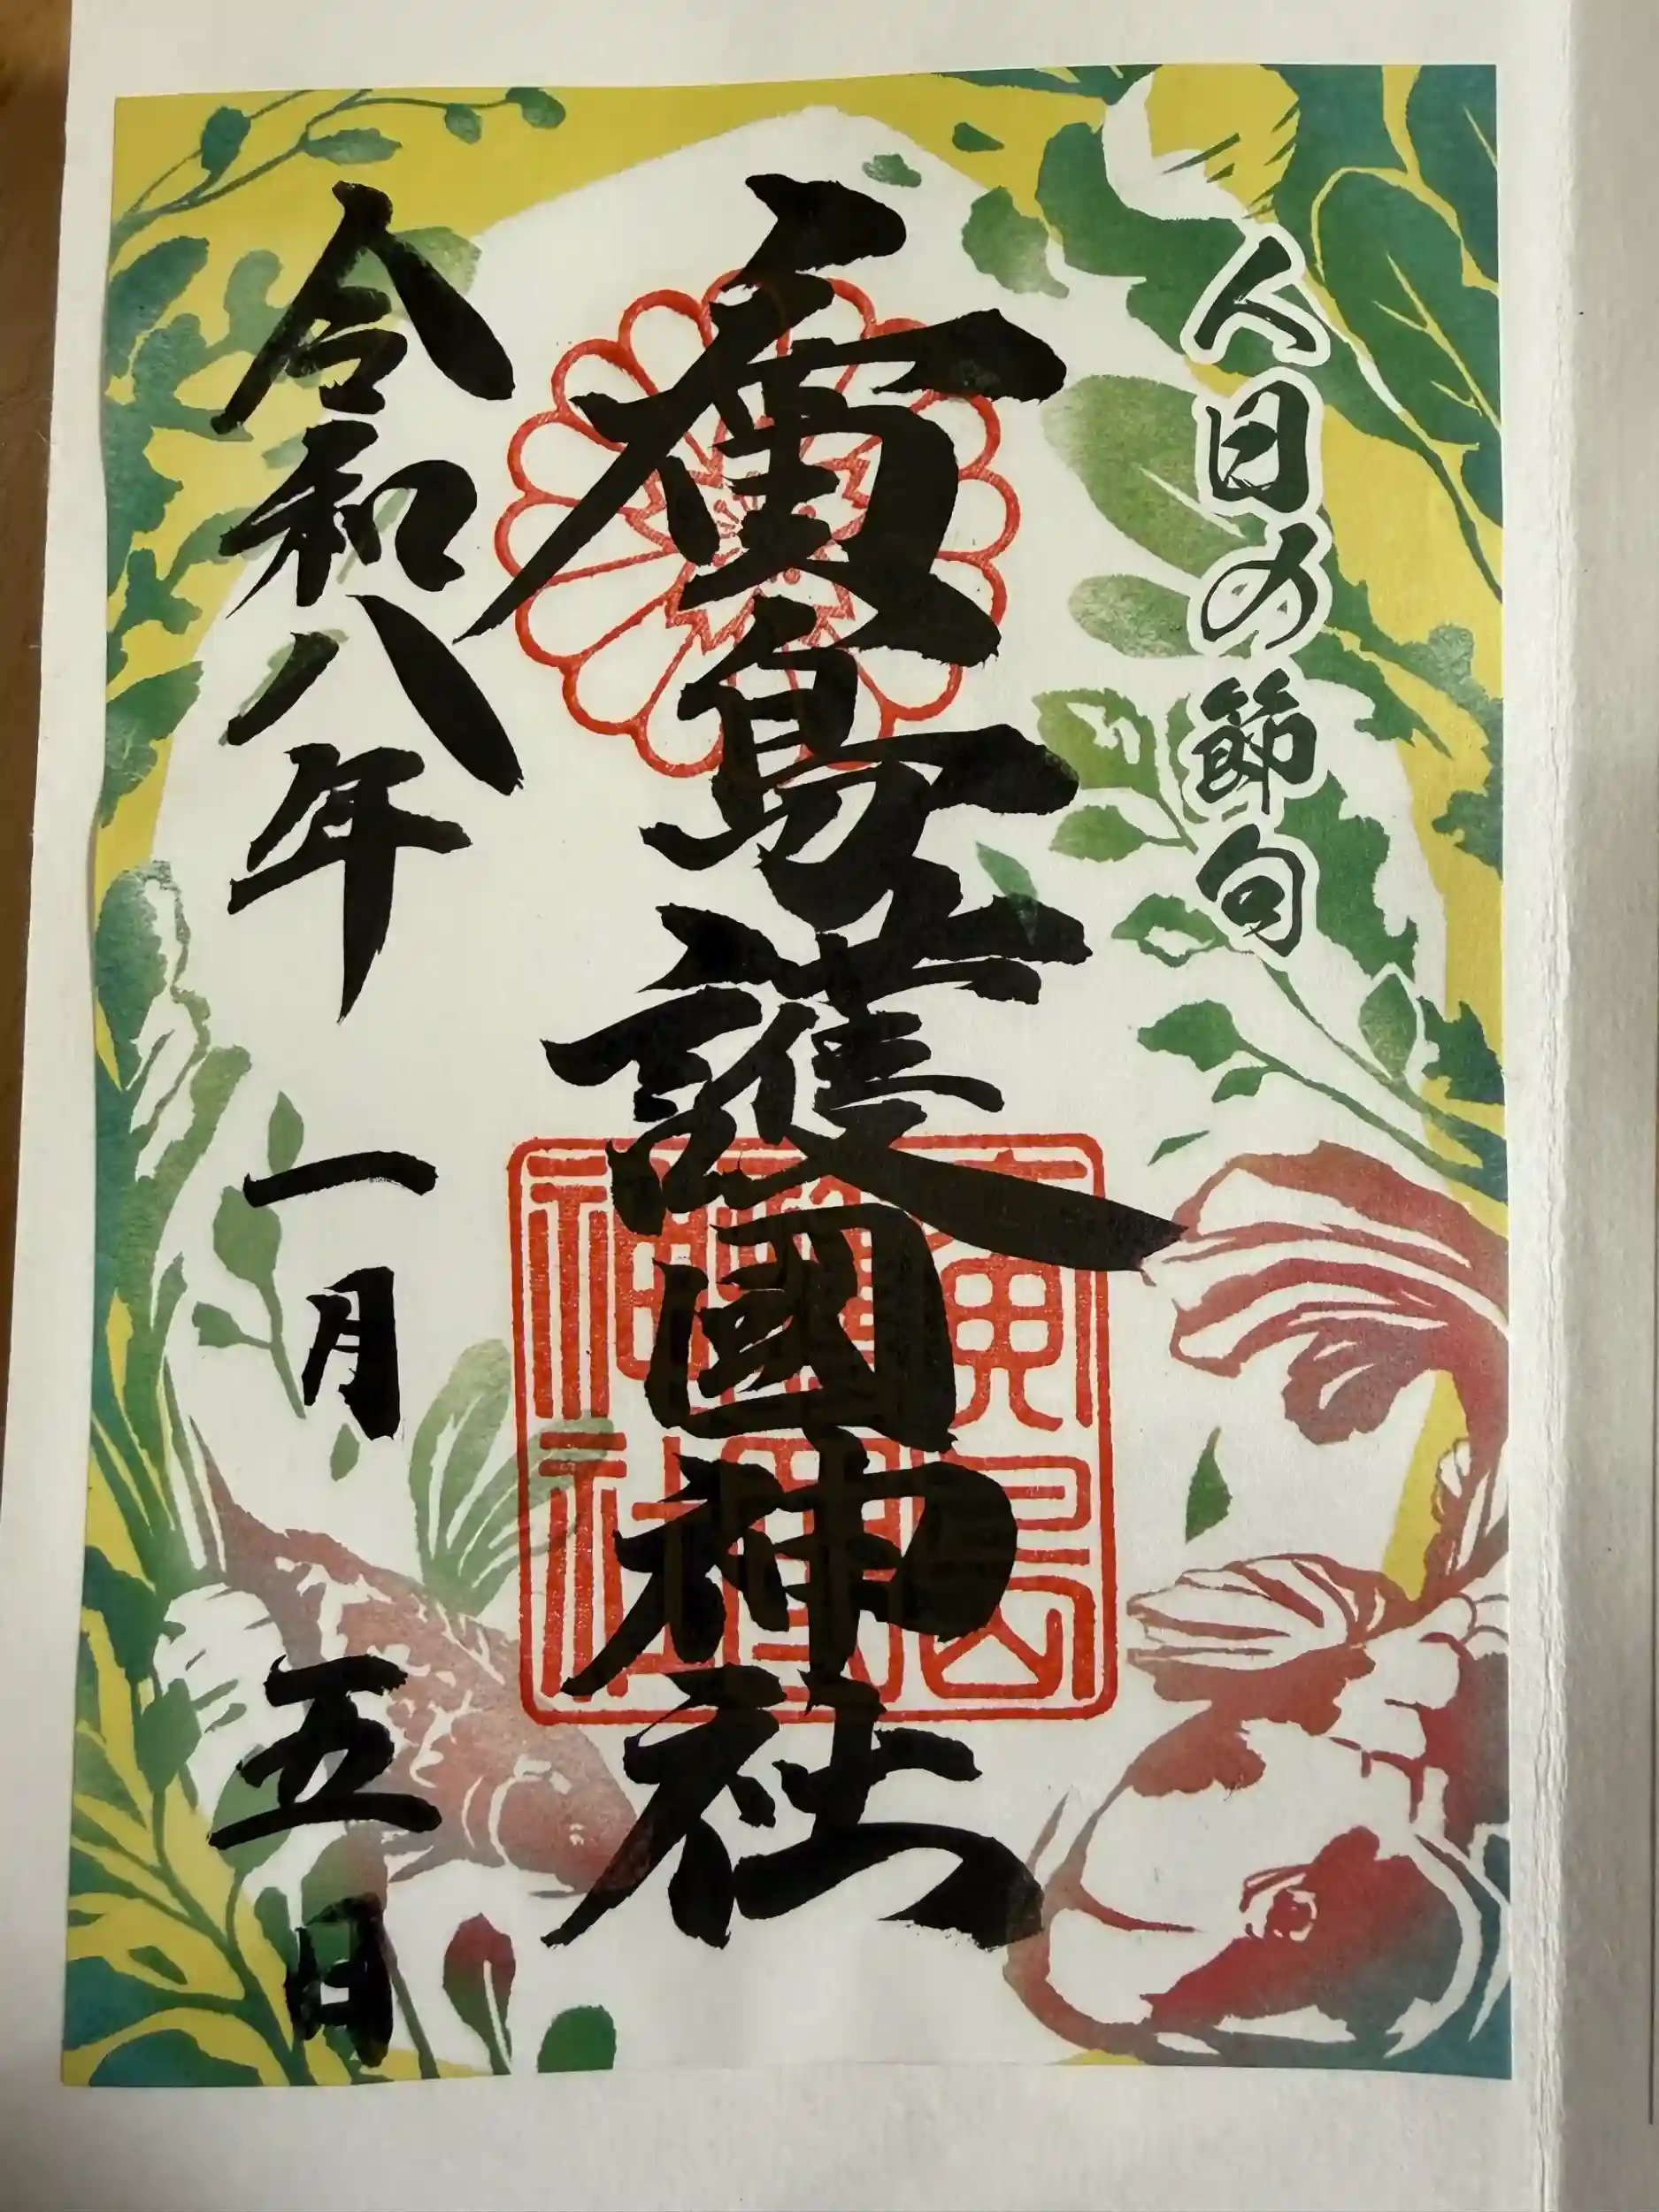 人日の節句
廣島護國神社
令和八年一月五日
廣島護國神社